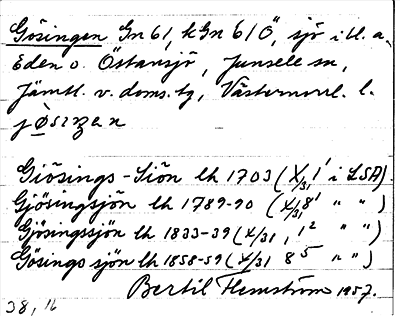 Gösingen Gn 61, k Gn 61Ö, sjö i ll. a.
Eden o. Östansjö, Junsele sn,
Jämtl. v. doms. tg, Västernorrl. l.
jøsıŋɛn
Giösings-Siön lh 1703 (X/31 1¹ i LSA)
Gjösingsjön lh 1789-90 (X/31 8¹ " ")
Gjösingssjön lh 1833-39 (X/31, 1² " ")
Gösings sjön lh 1858-59 (X/31 8⁵ " ")
Bertil Flemström 1957.
38, 16